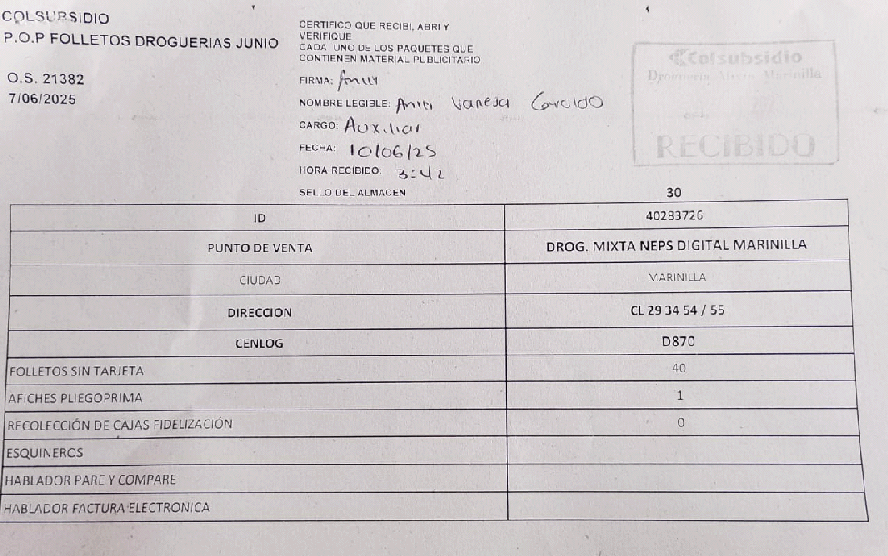 COLSUBSIDIO
P.O.P FOLLETOS DROGUERIAS JUNIO
O.S. 21382
7/06/2025
CERTIFICO QUE RECIBI, ABRI Y
VERIFIQUE
CADA UNO DE LOS PAQUETES QUE
CONTIENEN MATERIAL PUBLICITARIO
FIRMA:
NOMBRE LEGIBLE: Vanesa
CARGO: Auxiliar
FECHA: 10/06/25
HORA RECIBIDO: 3:42
SELLO DEL ALMACEN
Colsubsidio
Marinilla
RECIBIDO
30
ID 40283726
PUNTO DE VENTA DROG. MIXTA NEPS DIGITAL MARINILLA
CIUDAD MARINILLA
DIRECCION CL 29 34 54 / 55
CENLOG D87C
FOLLETOS SIN TARJETA 40
AFICHES PLIEGOPRIMA 1
RECOLECCIÓN DE CAJAS FIDELIZACIÓN 0
ESQUINEROS
HABLADOR PARE Y COMPARE
HABLADOR FACTURA ELECTRONICA